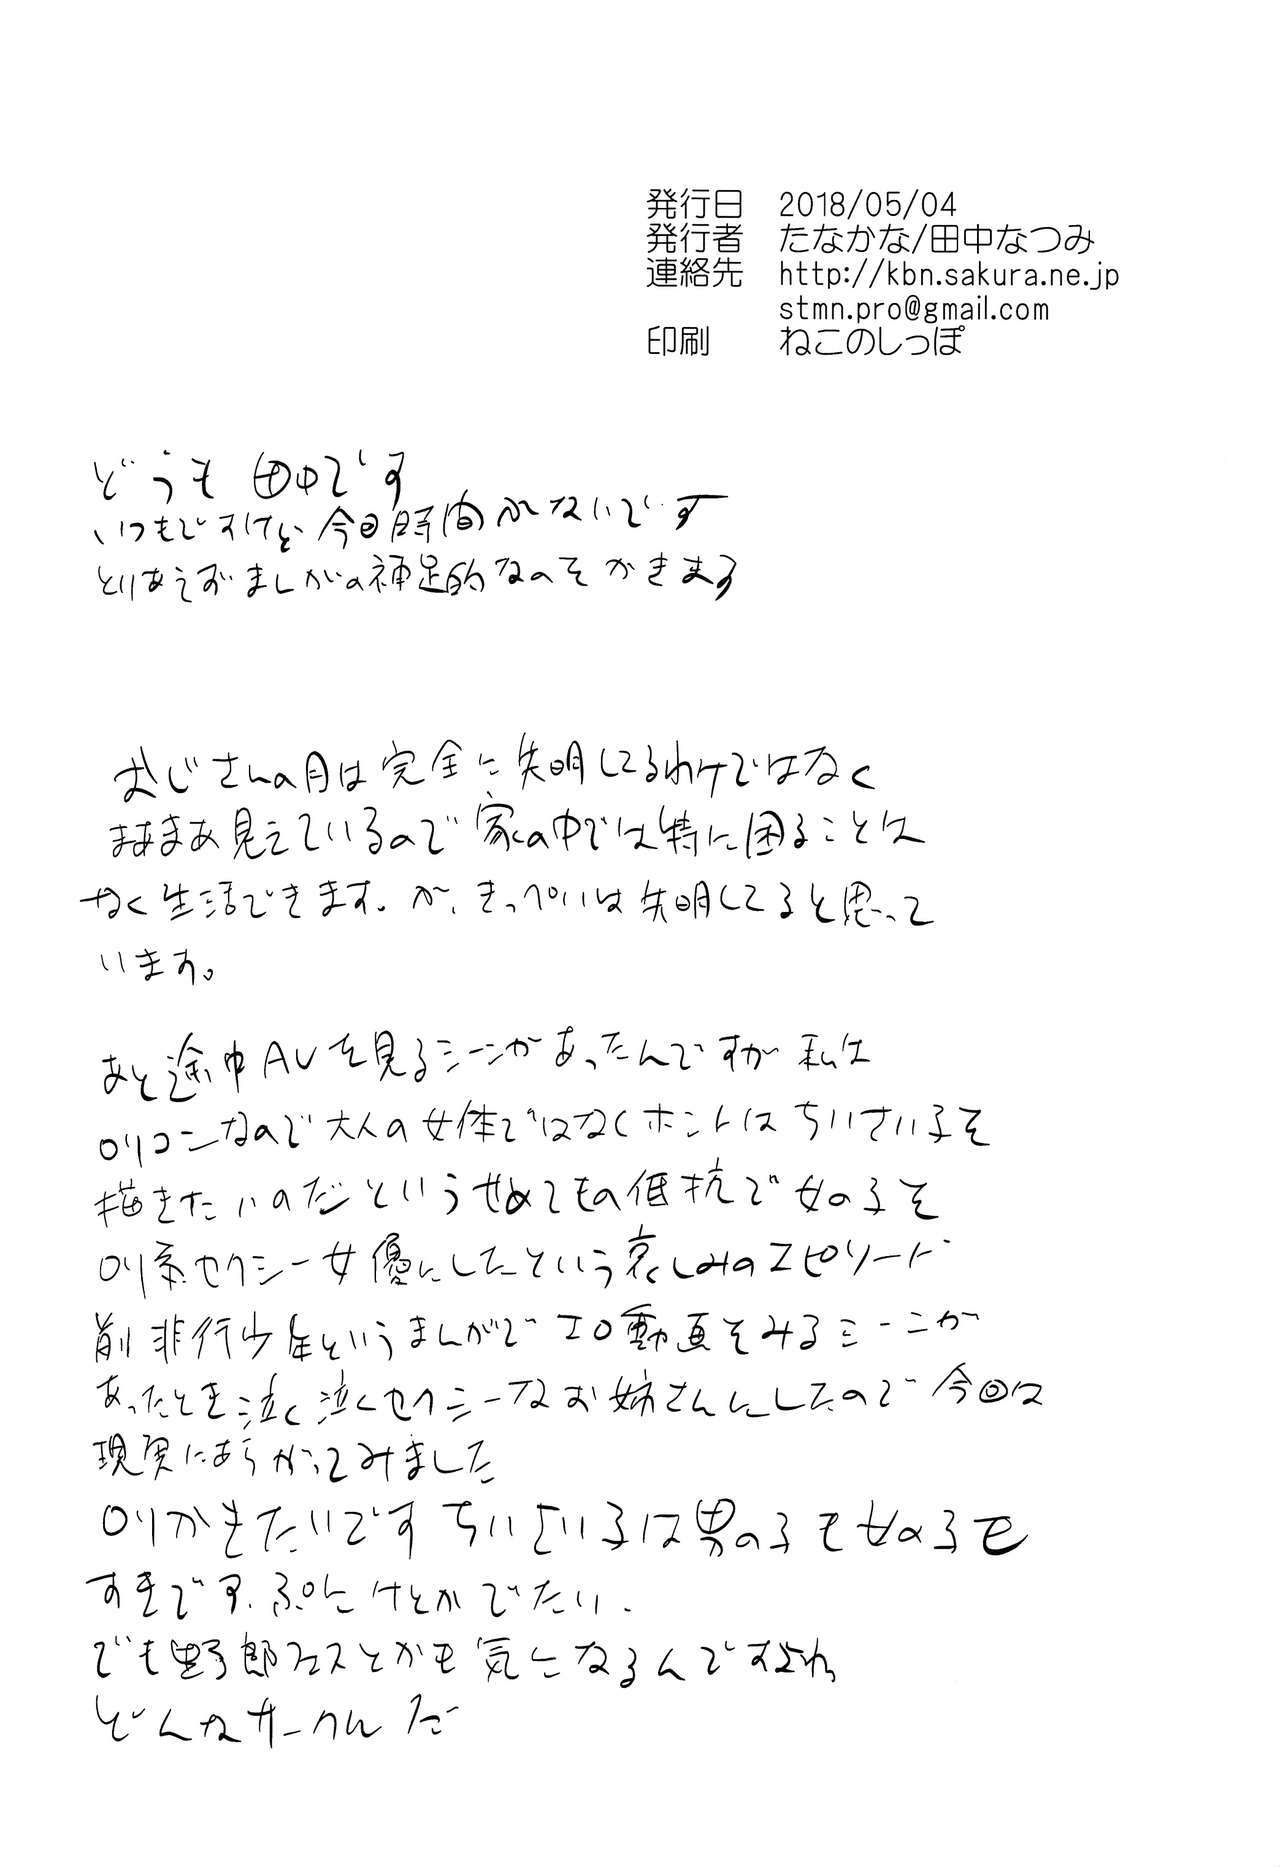 発行日 2018/05/04
発行者 たなかな/田中なつみ
連絡先 http://kbn.sakura.ne.jp
stmn.pro@gmail.com
印刷 ねこのしっぽ
どうも 田中です
いつもですけど 今回時間がないです
とりあえずまんがの補足的なのをかきます
おじさんの目は完全に失明してるわけではなく
まあまあ見えているので家の中では特に困ることは
なく生活できます。が、きっぺいは失明してると思って
います。
あと途中AVを見るシーンがあったんですが 私は
ロリコンなので大人の女体ではなくホントはちいさい子を
描きたいのだというせめてもの低抗で女の子を
ロリ系セクシー女優にしたという哀しみのエピソード
前非行少年というまんがでエロ動画をみるシーンが
あったとき泣く泣くセクシーなお姉さんにしたので今回は
現実にあらがってみました
ロリかきたいです ちいさい子は男の子も女の子も
すきです。ぷにけとかでたい.
でも野郎フェスとかも気になるんですよね
どんなサークルだ